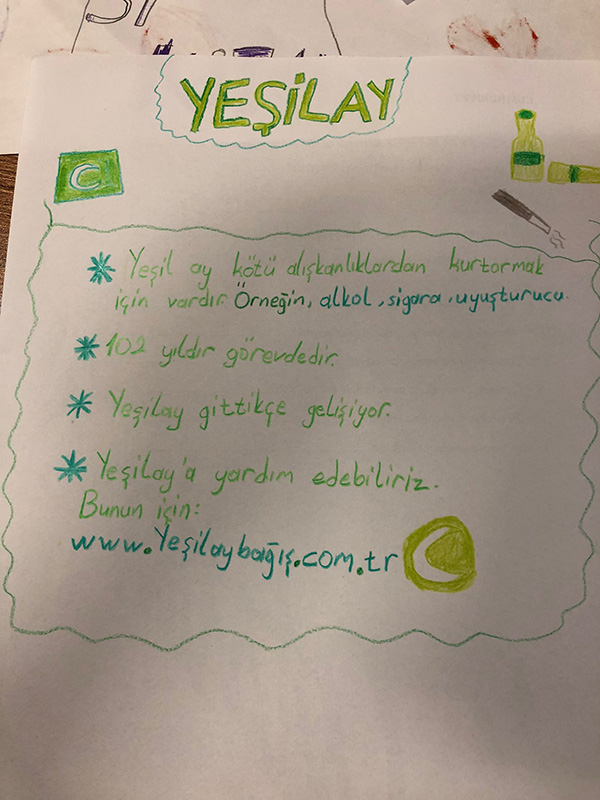 YEŞİLAY
* Yeşil ay kötü alışkanlıklardan kurtarmak
için vardır. Örneğin, alkol, sigara, uyuşturucu.
* 102 yıldır görevdedir.
* Yeşilay gittikçe gelişiyor.
* Yeşilay'a yardım edebiliriz.
Bunun için:
www.Yeşilaybağış.com.tr